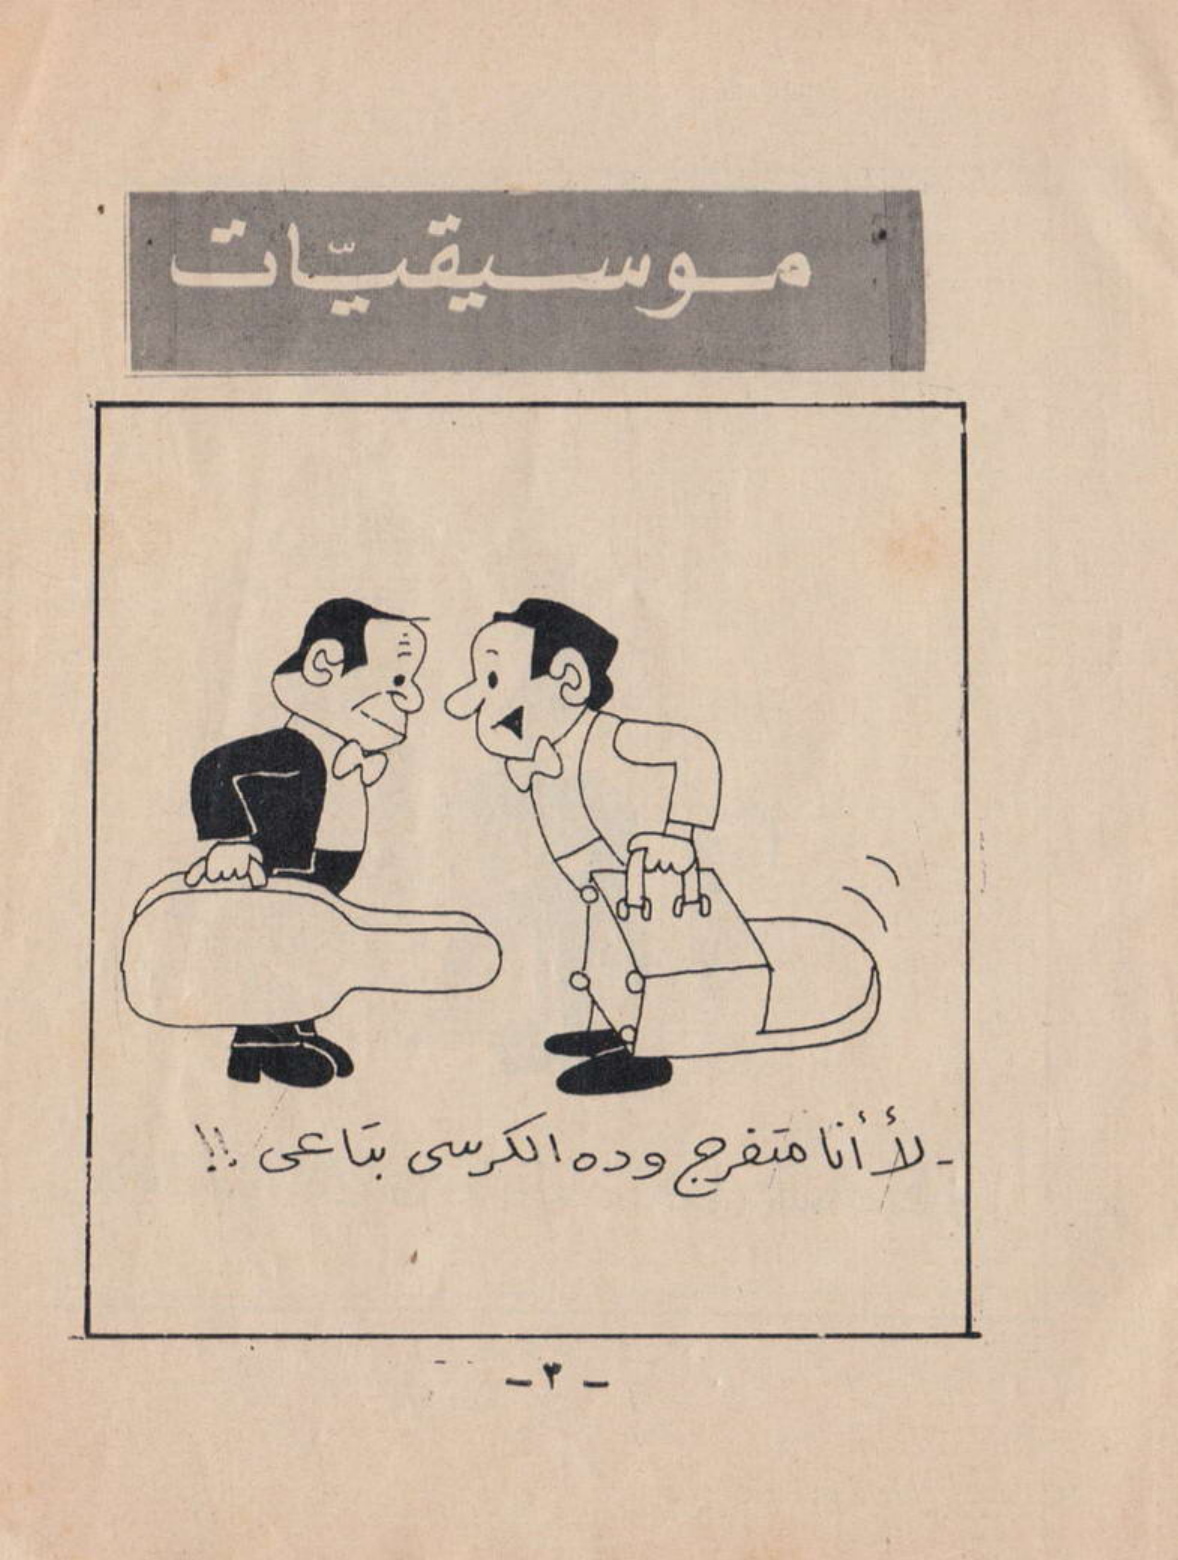 موسيقيّات
- لأ أنا متفرج وده الكرسى بتاعى !!
- ٣ -